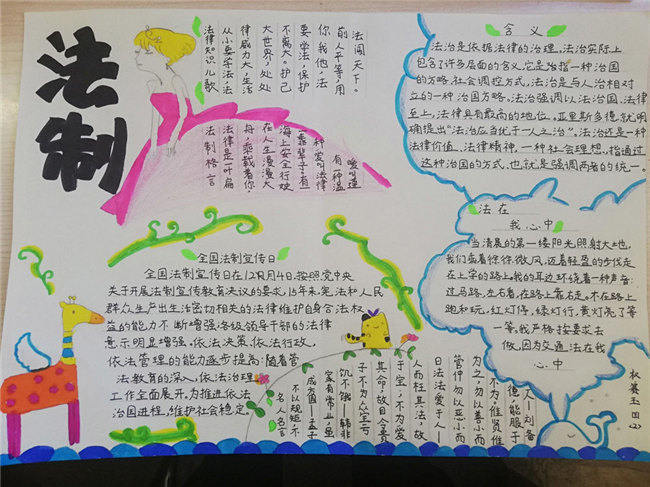 法制
法律知识儿歌
从小要学法,法
律威力大,生活
大世界,处处
不离大。护己
要学法,保护
你我他,法
前人平等,用
法闯天下。
法制格言
法律是一叶扁
舟,乘载着你,
在人生漫漫大
海上安全行驶
含义
法治是依据法律的治理。法治实际上
包含了许多层面的含义,它是治指一种治国
的方略社会调控方式,法治是与人治相对
立的一种治国方略。法治强调以法治国、法律
至上,法律具有最高的地位。亚里斯多德就明
确提出“法治应当优于一人之治”。法治还是一种
法律价值、法律精神,一种社会理想,指通过
这种治国的方式,也就是强调两者的统一。
法在
我心中
当清晨的第一缕阳光照射大地,
我们的耳边环绕着一种声音:
过马路,左右看,在路上靠右走。不在路上
跑和玩,红灯停,绿灯行,黄灯亮了等
一等,我严格按要求去
做,因为交通法在我
心中
全国法制宣传日
全国法制宣传日在12月4日,按照党中央
关于开展法制宣传教育决议的要求,15年来,宪法和人民
群众生产出生活密切相关的法律维护自身合法权
益的能力不断增强各级领导干部的法律
意示明显增强。依法决策、依法行政,
依法管理的能力逐步提高;随着普
法教育的深入,依法治理
工作全面展开,为推进依法
治国进程,维护社会稳定。
名人名言
不以规矩,不
成方圆——孟子
家有常业,虽
饥不饿——韩非
子不为众生亏
其命,故曰令贵
于宝;不为爱
人而枉其法,故
曰法法爱于人——
管仲勿以恶小而
为之,勿以善小而
不为,惟贤惟
德,能服于
人——刘备
四(2)